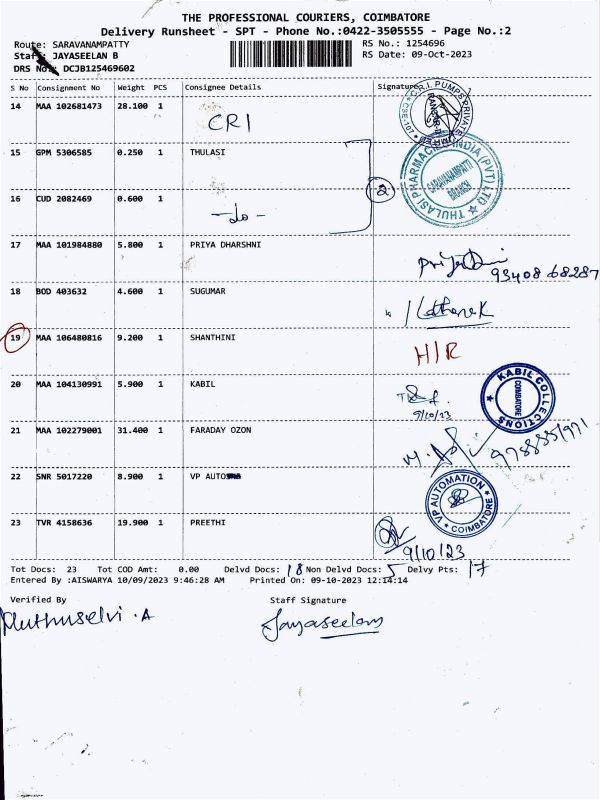 THE PROFESSIONAL COURIERS, COIMBATORE
Delivery Runsheet - SPT - Phone No.:0422-3505555 - Page No.:2
Route: SARAVANAMPATTY RS No.: 1254696
Staff: JAYASEELAN B RS Date: 09-Oct-2023
DRS No.: DCJB125469602
S No Consignment No Weight PCS Consignee Details Signature
14 MAA 102681473 28.100 1
CRI
C.R.I. PUMPS PRIVATE LIMITED
15 GPM 5306585 0.250 1 THULASI
THULASI PHARMACIES INDIA (PVT) LTD
SARAVANAMPATTI
BRANCH
16 CUD 2082469 0.600 1
-do-
2
17 MAA 101984880 5.800 1 PRIYA DHARSHNI
93408 68287
18 BOD 403632 4.600 1 SUGUMAR
19 MAA 106480816 9.200 1 SHANTHINI
H/R
20 MAA 104130991 5.900 1 KABIL
9/10/23
KABIL COLLECTIONS
COIMBATORE
21 MAA 102279001 31.400 1 FARADAY OZON
22 SNR 5017220 8.900 1 VP AUTO
VP AUTOMATION
COIMBATORE
23 TVR 4158636 19.900 1 PREETHI
9/10/23
Tot Docs: 23 Tot COD Amt: 0.00 Delvd Docs: 18 Non Delvd Docs: 5 Delvy Pts: 17
Entered By :AISWARYA 10/09/2023 9:46:28 AM Printed On: 09-10-2023 12:14:14
Verified By Staff Signature
Muthuselvi .A Jayaseelan